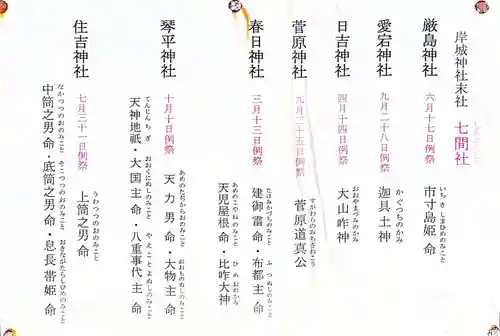 岸城神社末社 七間社
厳島神社 六月十七日例祭 市寸島姫命
いちきしまひめのみこと
愛宕神社 九月二十八日例祭 迦具土神
かぐつちのかみ
日吉神社 四月十四日例祭 大山咋神
おおやまづみのかみ
菅原神社 九月二十五日例祭 菅原道真公
すがわらのみちざねこう
春日神社 三月十三日例祭 建御雷命・布都主命
たけみかづちのみこと ふつぬしのみこと
天児屋根命・比咋大神
あめのこやねのみこと ひめおおかみ
琴平神社 十月十日例祭 天力男命・大物主命
あめのたぢからおのみこと おおものぬしのみこと
天神地祇・大国主命・八重事代主命
てんじんちぎ おおくにぬしのみこと やえことよぬしのみこと
住吉神社 七月三十一日例祭 上筒之男命
うわつつのおのみこと
中筒之男命・底筒之男命・息長帯姫命
なかつつのおのみこと そこつつのおのみこと おきながたらしひめのみこと